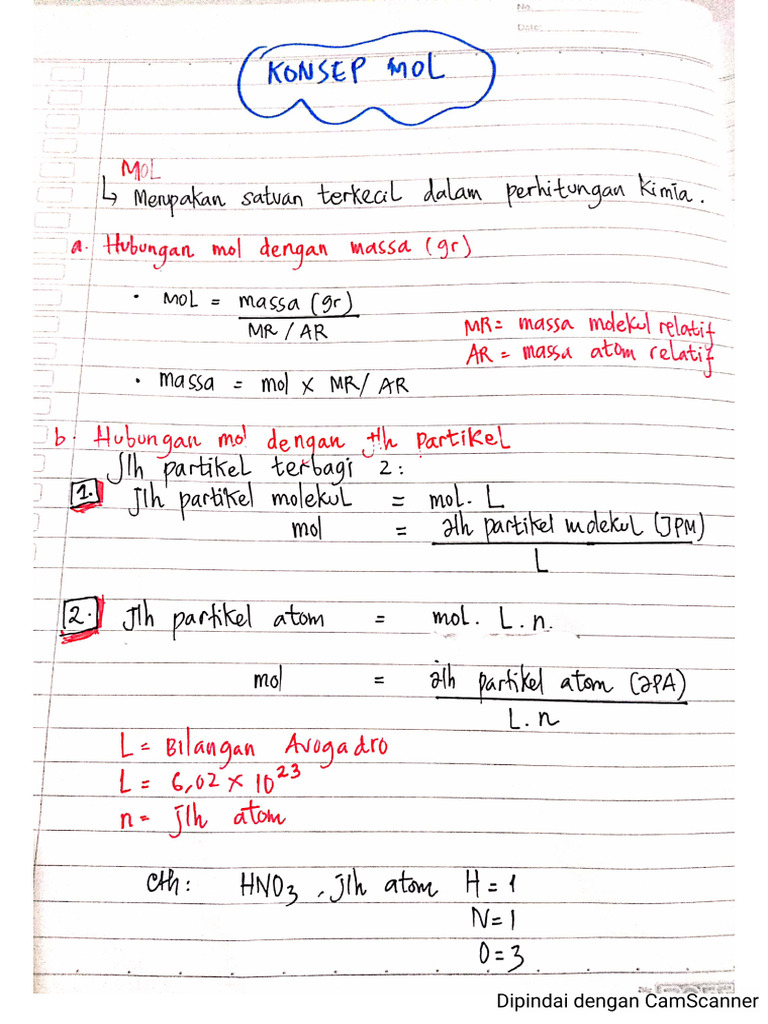 No.
Date:
KONSEP MOL
MOL
↳ Merupakan satuan terkecil dalam perhitungan kimia.
a. Hubungan mol dengan massa (gr)
• MOL = massa (gr)
MR / AR
MR = massa molekul relatif
AR = massa atom relatif
• massa = mol x MR/ AR
b. Hubungan mol dengan jlh partikel
Jlh partikel terbagi 2:
1. Jlh partikel molekul = mol. L
mol = Jlh partikel molekul (JPM)
L
2. Jlh partikel atom = mol. L. n.
mol = Jlh partikel atom (JPA)
L. n
L = Bilangan Avogadro
L = 6,02 x 10²³
n = jlh atom
Cth: HNO₃, jlh atom H = 1
N = 1
O = 3
Dipindai dengan CamScanner